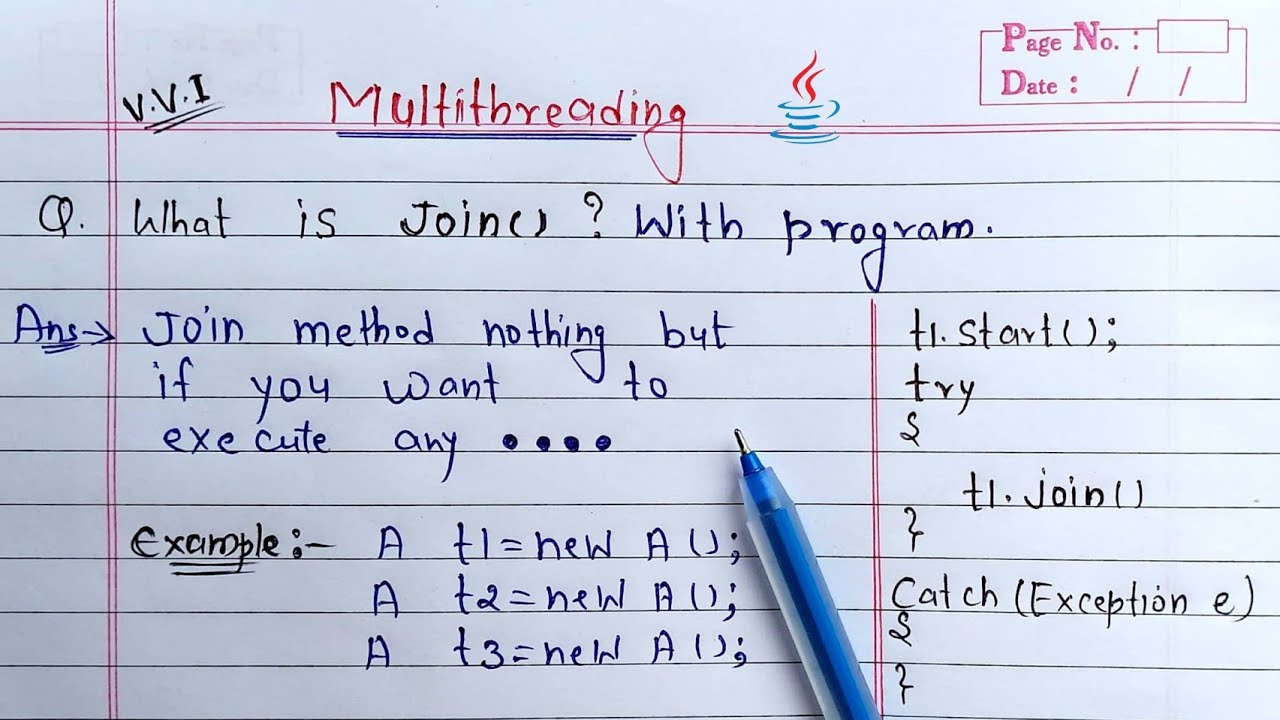 Page No. :
Date : / /
V.V.I
Multithreading
Q. What is Join() ? With program.
Ans→ Join method nothing but
if you want to
execute any ••••
Example:- A t1=new A();
A t2=new A();
A t3=new A();
t1.start();
try
{
t1.join()
}
Catch (Exception e)
{
}